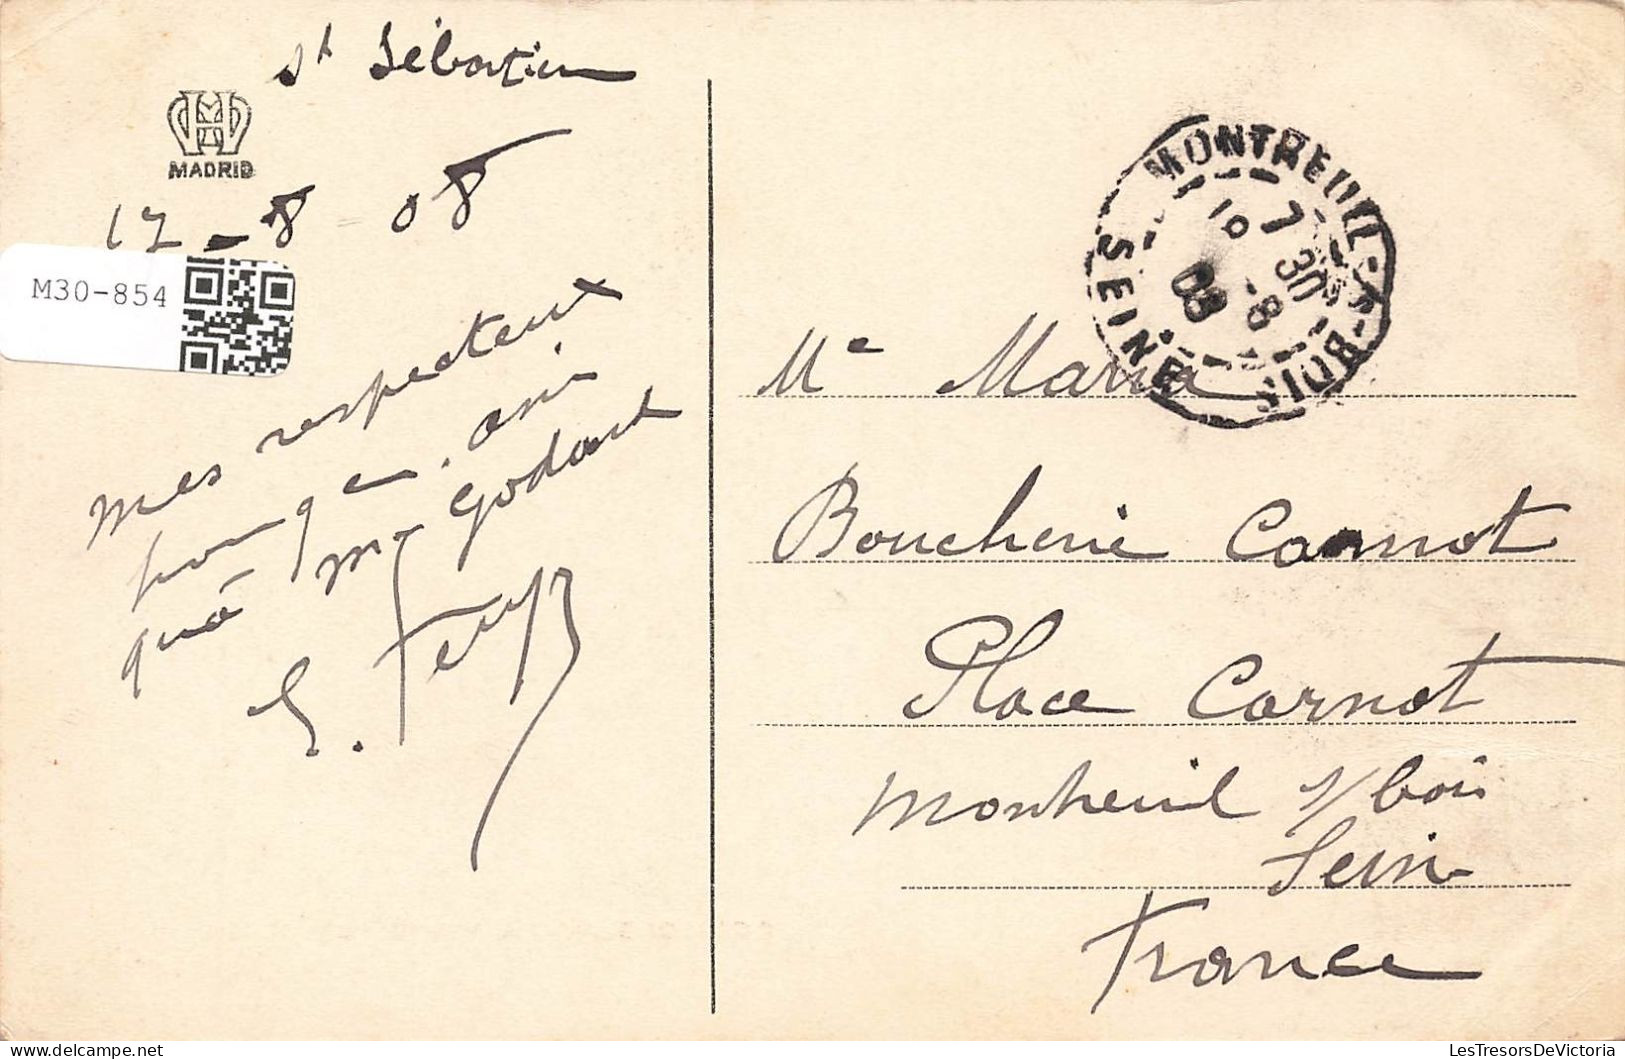 St Sébastien
MADRID
17 - 8 08
M30-854
mes respecteux
pour
qu'à Mr Godard
E.
MONTREUIL-S-BOIS
SEINE
7 30
19 -8
08
Me Maria
Boucherie Carnot
Place Carnot
Montreuil s/bois
Seine
France
LesTresorsDeVictoria